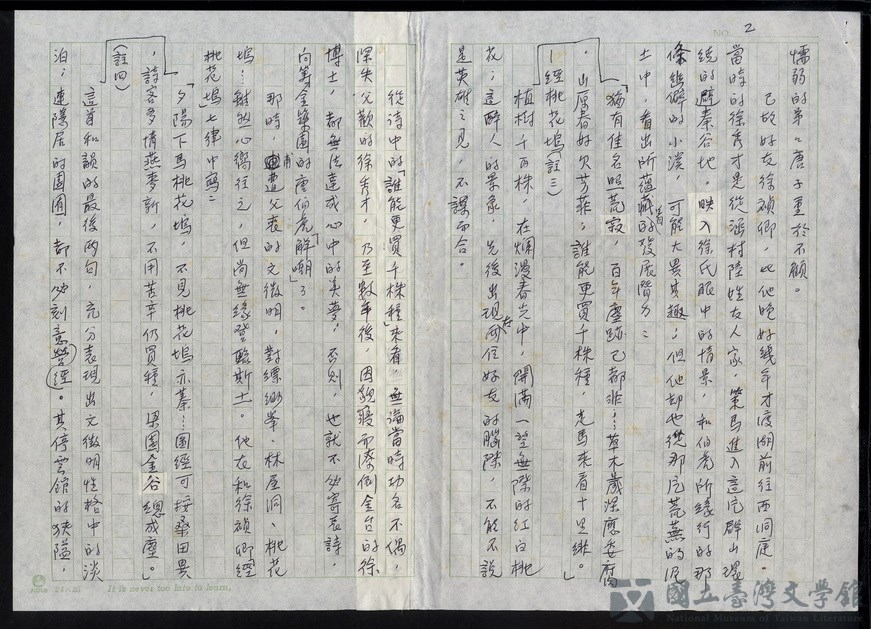 2
懦弱的弟弟唐子重於不顧。
己故好友徐禎卿,比他晚好幾年才渡湖前往西洞庭。
當時的徐秀才是從涵村陸姓友人家,策馬進入這片群山環
繞的避秦谷地。映入徐氏眼中的情景,和伯虎所緣行的那
條幽僻的小溪,可能大異其趣;但他却也從那片荒蕪的泥
土中,看出所蘊藏着的發展潛力:
「猶有佳名照荒寂,百年塵跡已都非…草木歲深應委腐
,山厚春好欠芳菲;誰能更買千株種,走馬來看十里緋。」
(經桃花塢(註三)
植樹千百株,在爛漫春光中,開滿一望無際的紅白桃
花;這醉人的景象,先後出現在兩位好友的腦際,不能不說
是英雄之見,不謀而合。
從詩中的「誰能更買千株種」來看,無論當時功名不偶,
深失父歡的徐秀才,乃至數年後,因貌寢而潦倒金台的徐
博士,都無法達成心中的美夢,否則,也就不必寄長詩,
向等金築園的唐伯虎「解嘲」了。
那時,甫遭父喪的文徵明,對縹緲峯、林屋洞、桃花
塢…雖然心嚮往之,但尚無緣登臨斯土。他在和徐禎卿經
桃花塢七律中寫:
「夕陽下馬桃花塢,不見桃花塢亦蓁…圖經可按桑田異
,詩客多情燕麥新,不用苦辛仍買種,梁園金谷總成塵。」
(註四)
這首和韻的最後兩句,充分表現出文徵明性格中的淡
泊;連隱居的園圃,都不必刻意營經。其停雲館的狹隘,
It is never too late to learn.
國立臺灣文學館
National Museum of Taiwan Literature